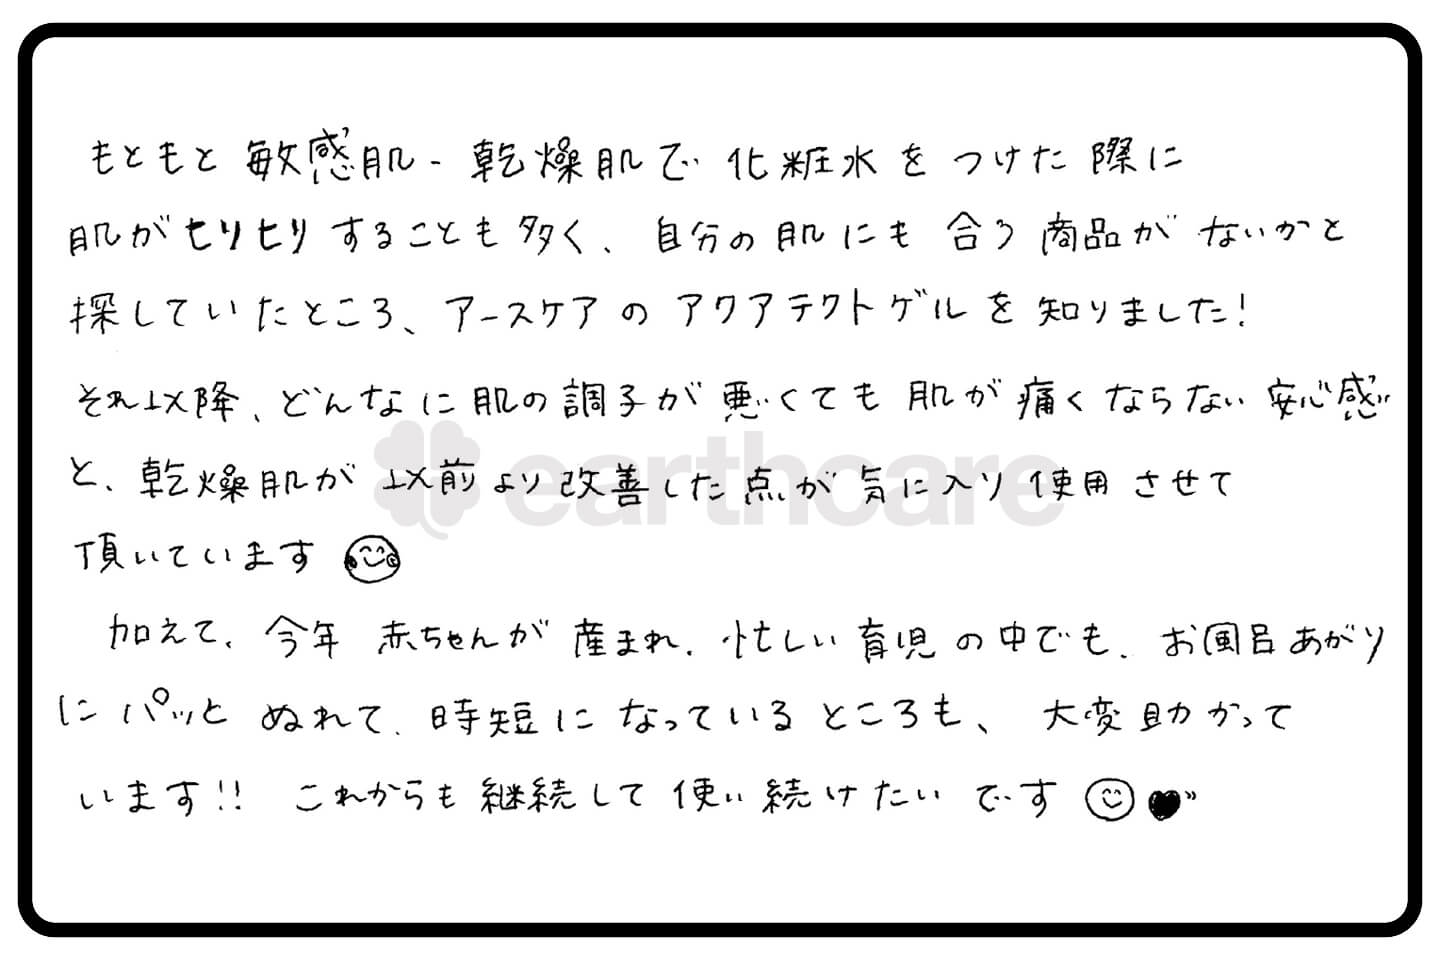 もともと 敏感肌-乾燥肌で 化粧水を つけた際に
肌がヒリヒリすることも多く、自分の肌にも合う商品がないかと
探していたところ、アースケアのアクアテクトゲルを知りました!
それ以降、どんなに肌の調子が悪くても肌が痛くならない安心感
と、乾燥肌が以前より改善した点が気に入り使用させて
頂いています
earthcare
加えて、今年 赤ちゃんが産まれ、忙しい育児の中でも、お風呂あがり
にパッとぬれて、時短になっているところも、大変助かって
います!! これからも継続して使い続けたいです